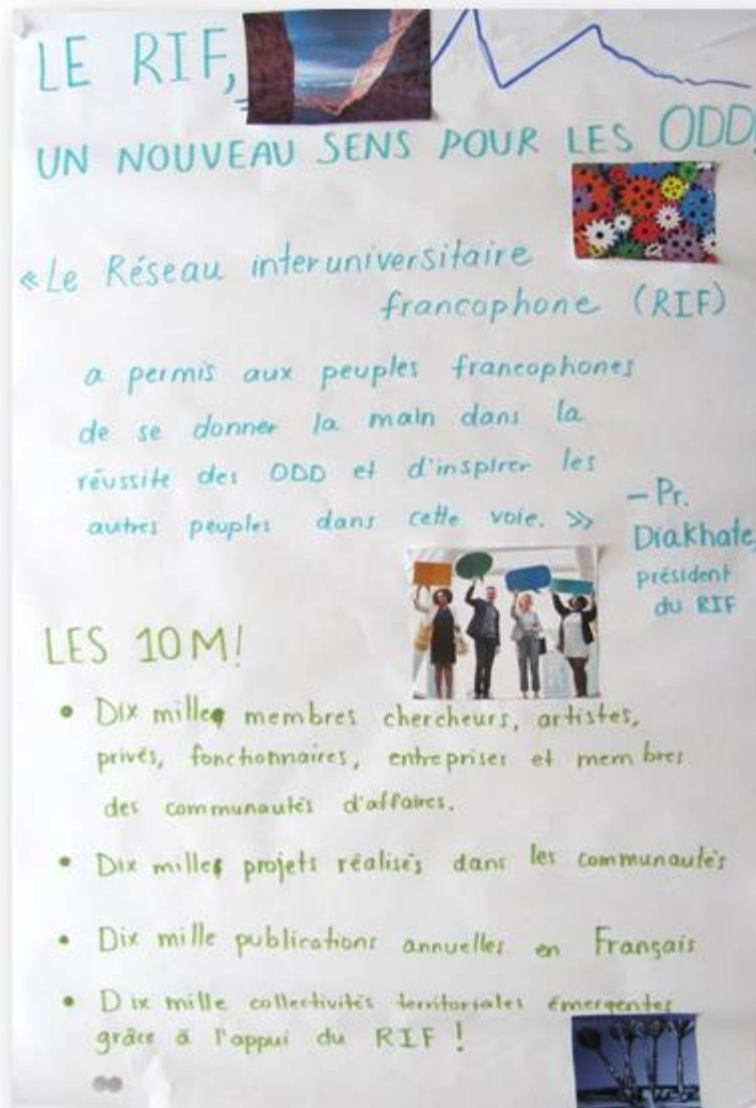 LE RIF,
UN NOUVEAU SENS POUR LES ODD,
«Le Réseau interuniversitaire
francophone (RIF)
a permis aux peuples francophones
de se donner la main dans la
réussite des ODD et d'inspirer les
autres peuples dans cette voie. »
– Pr.
Diakhate,
président
du RIF
LES 10M!
• Dix mille membres chercheurs, artistes,
privés, fonctionnaires, entreprises et membres
des communautés d'affaires.
• Dix mille projets réalisés dans les communautés
• Dix mille publications annuelles en Français
• Dix mille collectivités territoriales émergentes
grâce à l'appui du RIF !